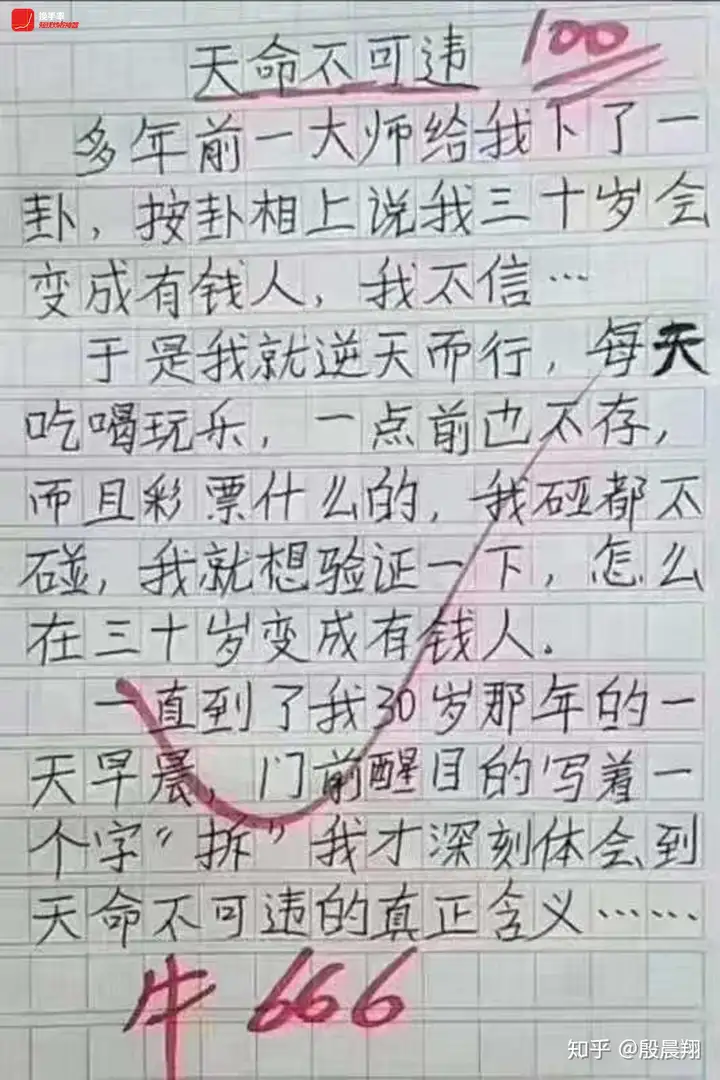 天命不可违 100
多年前一大师给我下了一
卦，按卦相上说我三十岁会
变成有钱人，我不信…
于是我就逆天而行，每天
吃喝玩乐，一点前也不存，
而且彩票什么的，我碰都不
碰，我就想验证一下，怎么
在三十岁变成有钱人.
一直到了我30岁那年的一
天早晨，门前醒目的写着一
个字“拆”我才深刻体会到
天命不可违的真正含义……
牛 666
知乎 @殷晨翔